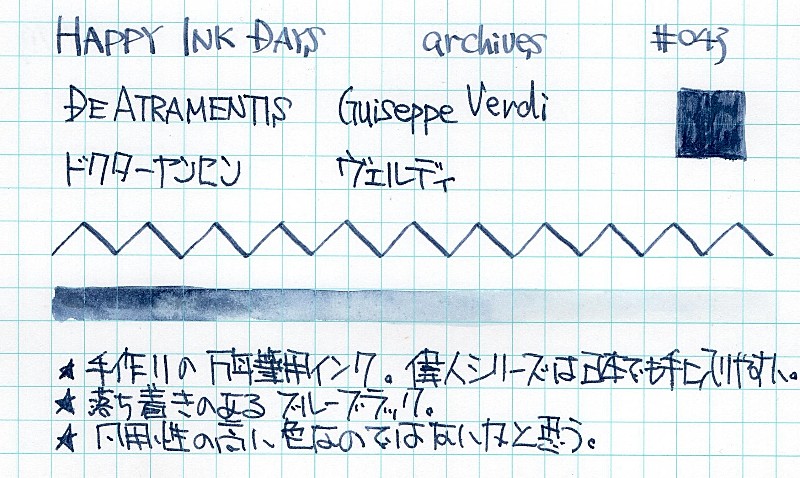 HAPPY INK DAYS archives #043
DE ATRAMENTIS Guiseppe Verdi
ドクターヤンセン ヴェルディ
★ 手作りの万年筆用インク。偉人シリーズは日本でも手に入りやすい。
★ 落ち着きのある ブルーブラック。
★ 汎用性の高い色なのではないかなと思う。